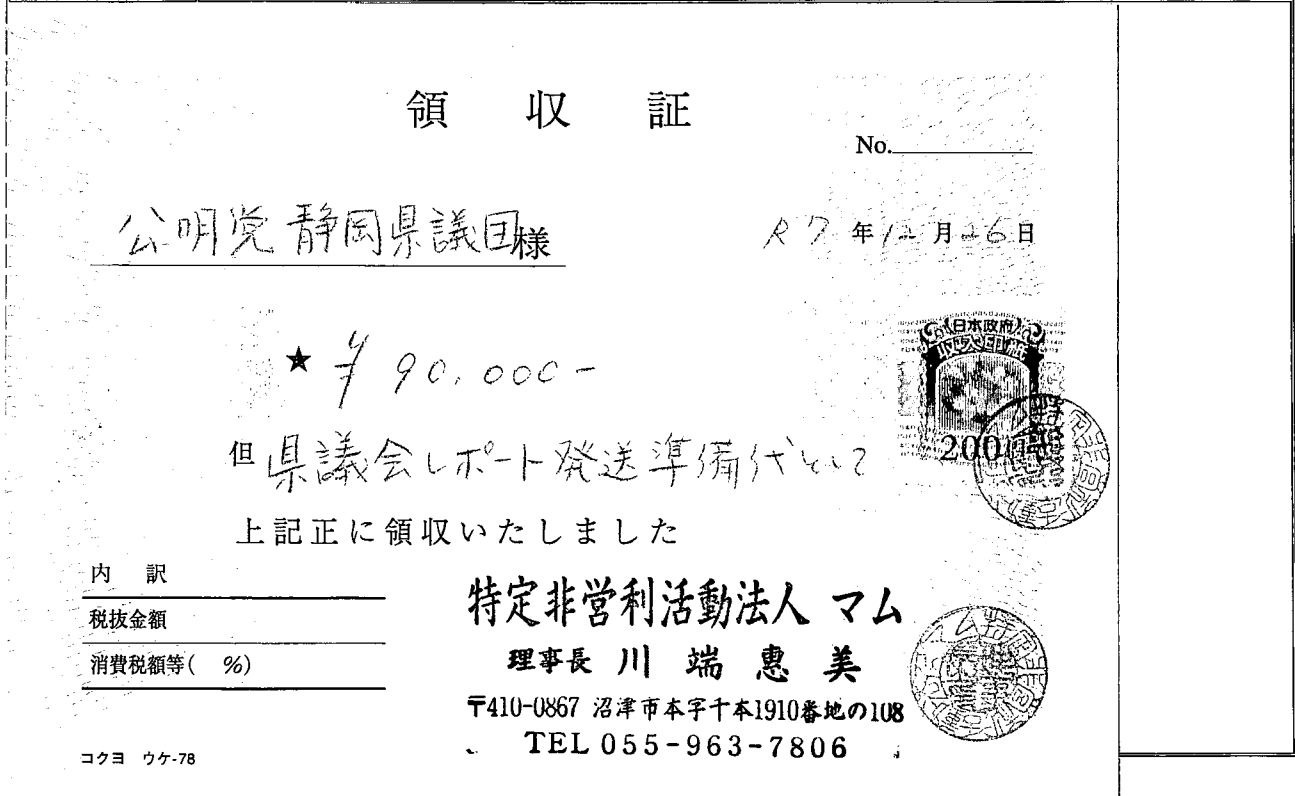 領収証
No.
公明党静岡県議団様
R7年12月26日
★ ¥90,000-
但 県議会レポート発送準備代として
上記正に領収いたしました
日本政府
収入印紙
200円
内訳
税抜金額
消費税額等( %)
特定非営利活動法人 マム
理事長 川端惠美
〒410-0867 沼津市本字千本1910番地の108
TEL 055-963-7806
コクヨ ウケ-78